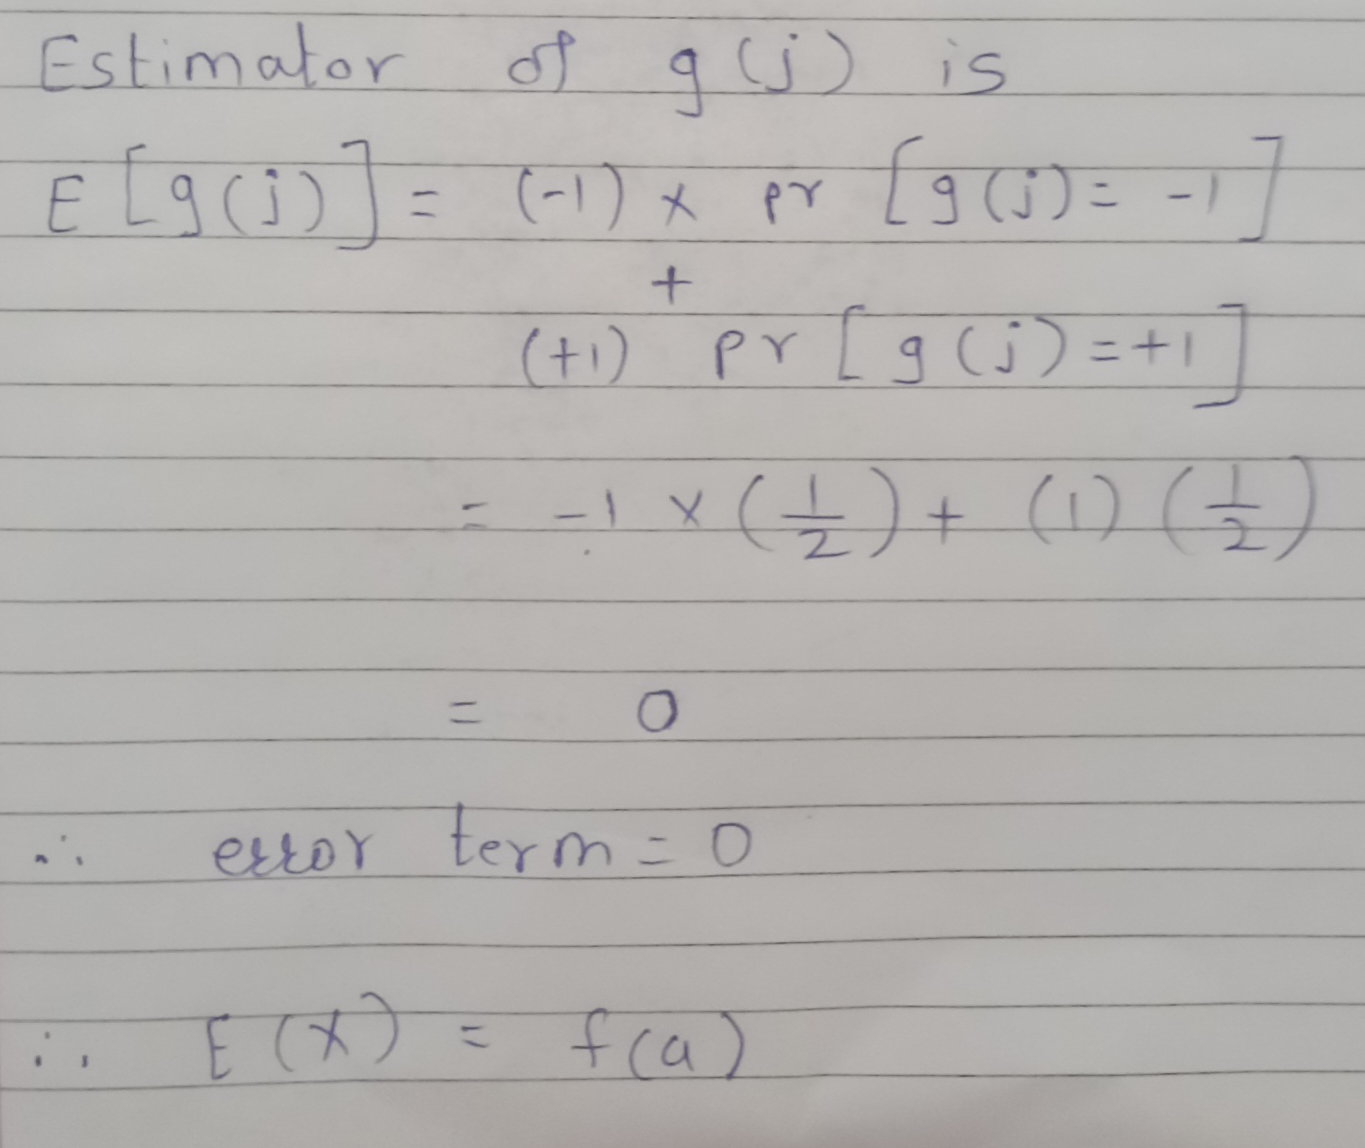 Estimator of g(j) is
E[g(j)] = (-1) x pr [g(j) = -1]
+
(+1) pr [g(j) = +1]
= -1 x (1/2) + (1) (1/2)
= 0
∴ error term = 0
∴ E(X) = f(a)